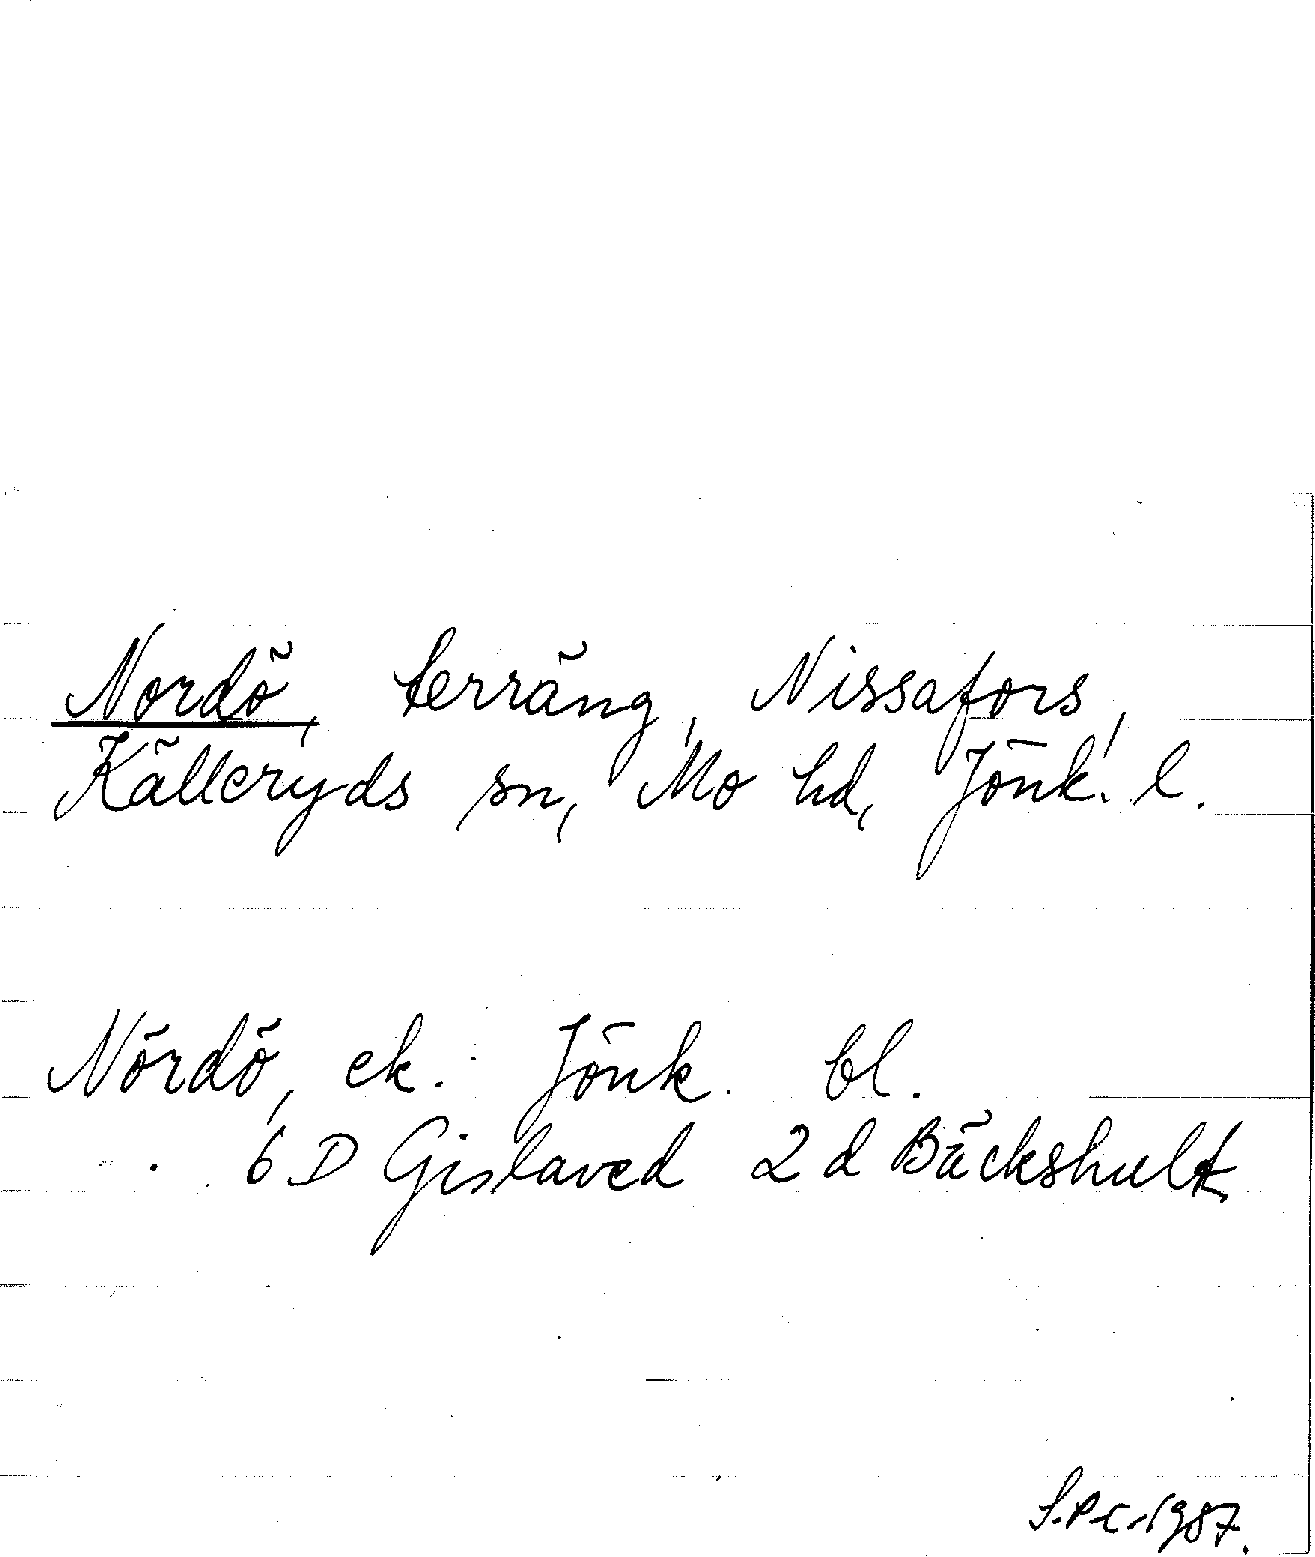 Nordö, terräng, Nissafors,
Källeryds sn, Mo hd, Jönk. l.
Nördö, ek. Jönk. bl.
6 D Gislaved 2 d Bäckshult
S.P.C. 1987.